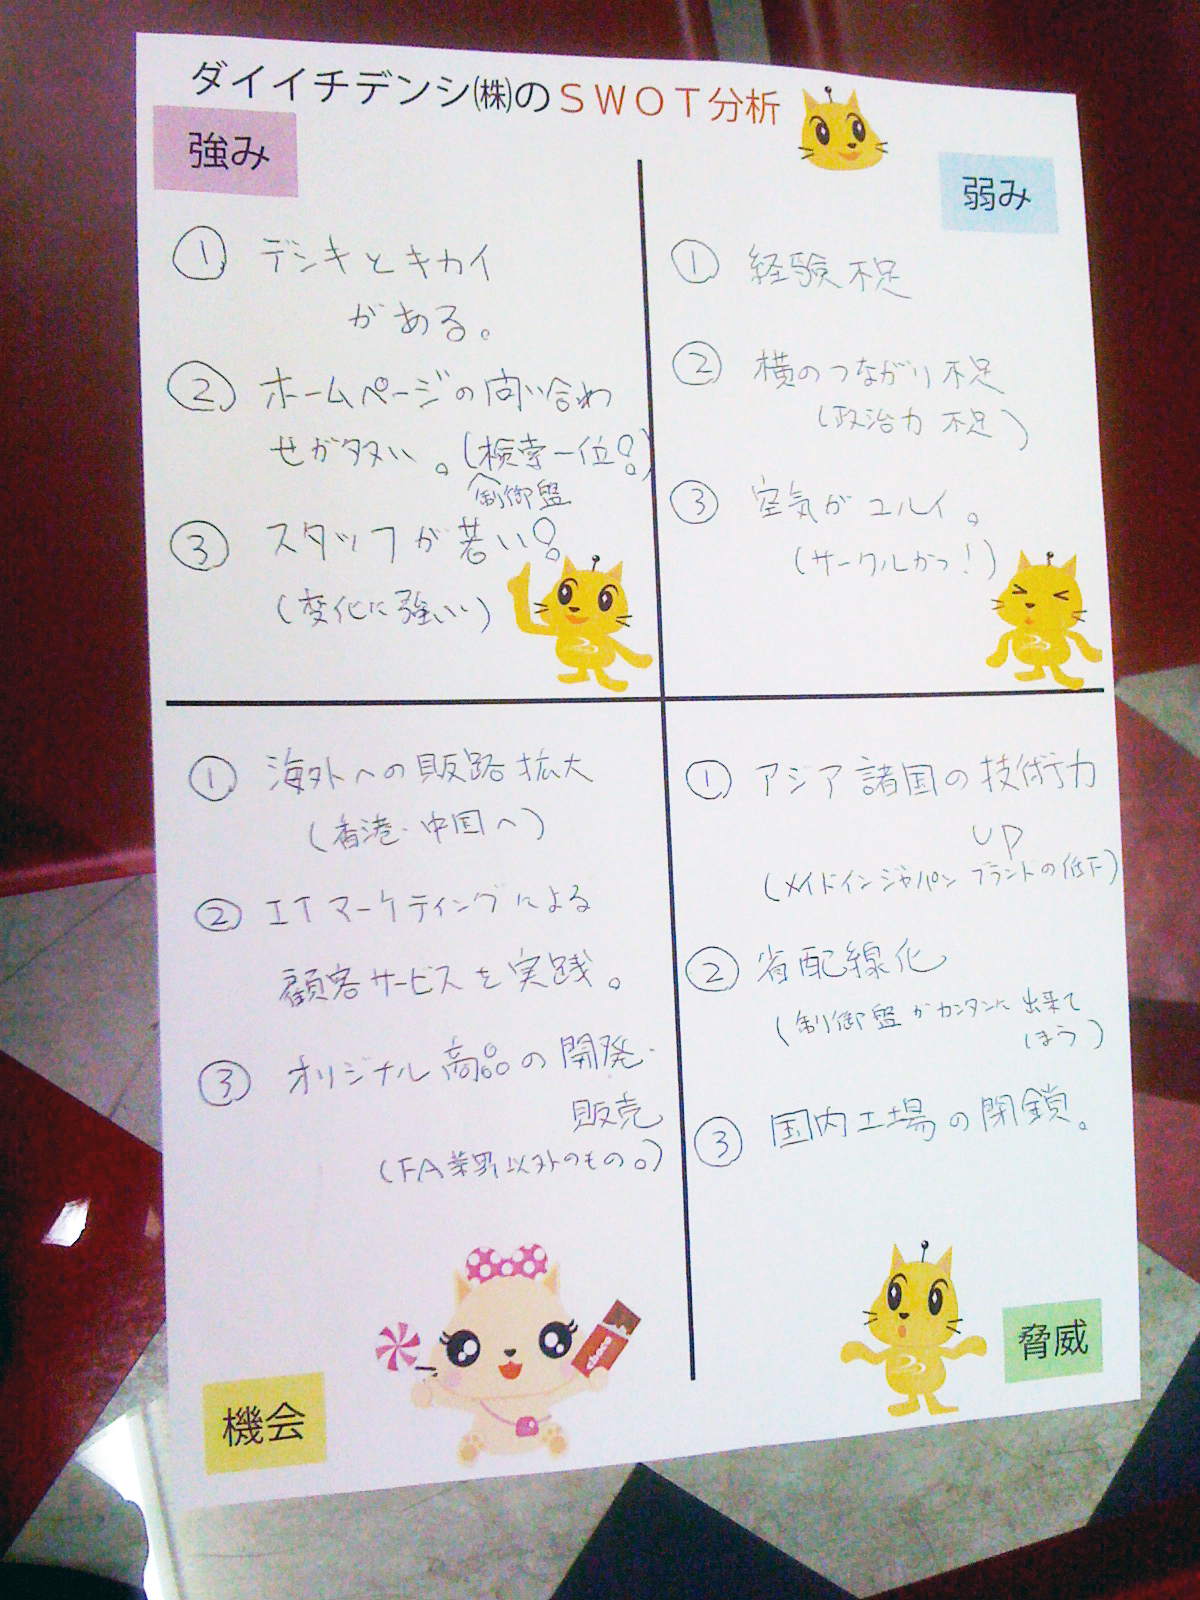 ダイイチデンシ㈱のSWOT分析
強み
① デンキとキカイ
がある。
② ホームページの問い合わ
せが多い。(検索一位!)
制御盤
③ スタッフが若い!
(変化に強いい)
弱み
① 経験不足
② 横のつながり不足
(政治力不足)
③ 空気がユルイ。
(サークルかっ!)
① 海外への販路拡大
(香港・中国へ)
② ITマーケティングによる
顧客サービスを実践。
③ オリジナル商品の開発・
販売
(FA業界以外のもの。)
機会
① アジア諸国の技術力
UP
(メイドインジャパンブランドの低下)
② 省配線化
(制御盤がカンタンに出来て
しまう)
③ 国内工場の閉鎖。
脅威